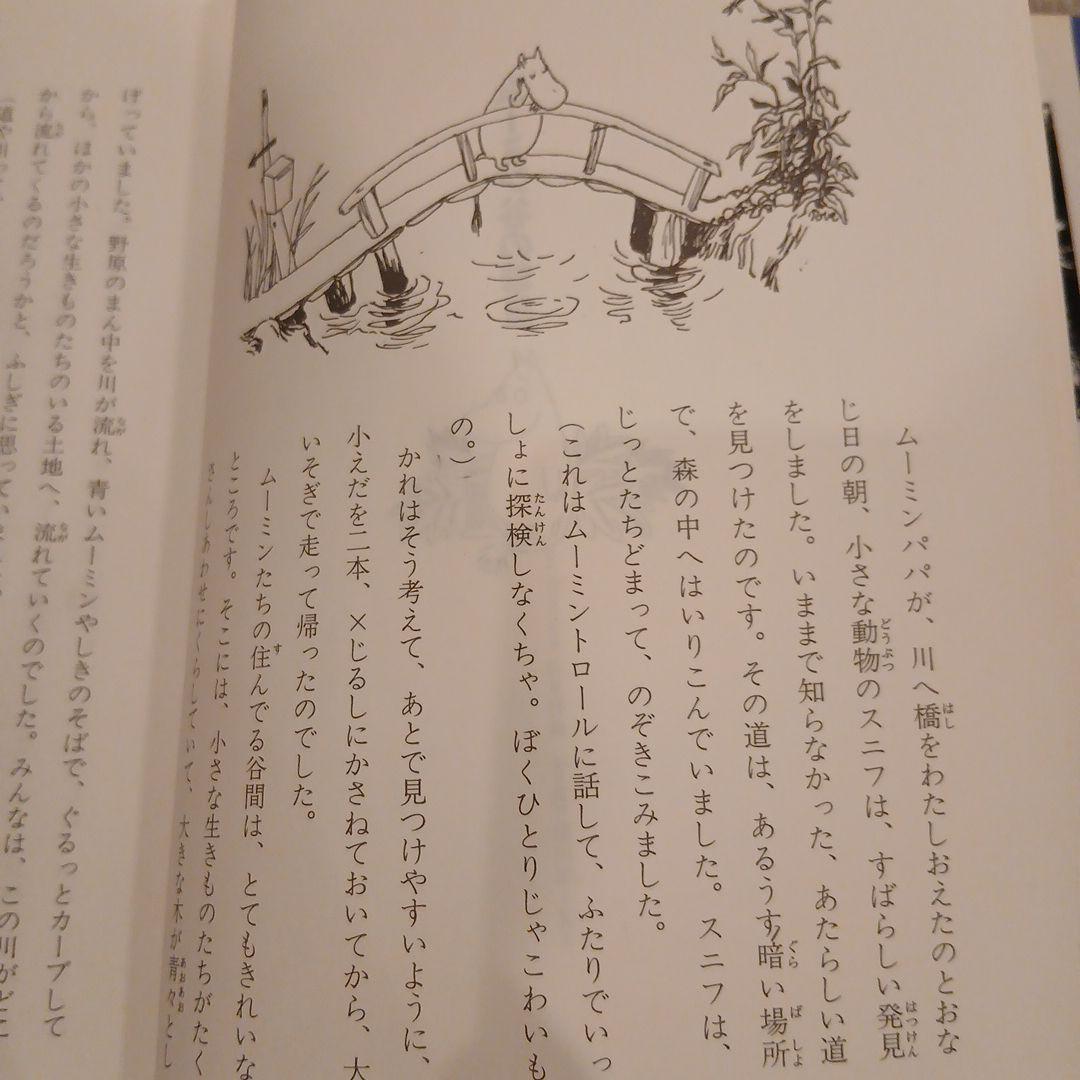 ムーミンパパが、川へ橋をわたしおえたのとおな
じ日の朝、小さな動物のスニフは、すばらしい発見
をしました。いままで知らなかった、あたらしい道
を見つけたのです。その道は、あるうす暗い場所
で、森の中へはいりこんでいました。スニフは、
じっとたちどまって、のぞきこみました。
(これはムーミントロールに話して、ふたりでいっ
しょに探検しなくちゃ。ぼくひとりじゃこわいも
の。)
かれはそう考えて、あとで見つけやすいように、
小えだを二本、×じるしにかさねておいてから、大
いそぎで走って帰ったのでした。
ムーミンたちの住んでる谷間は、とてもきれいな
ところです。そこには、小さな生きものたちがたく
さんしあわせにくらしていて、大きな木が青々とし
げっていました。野原のまん中を川が流れ、青いムーミンやしきのそばで、ぐるっとカーブして
から、ほかの小さな生きものたちのいる土地へ、流れていくのでした。みんなは、この川がどこ
から流れてくるのだろうかと、ふしぎに思ってい